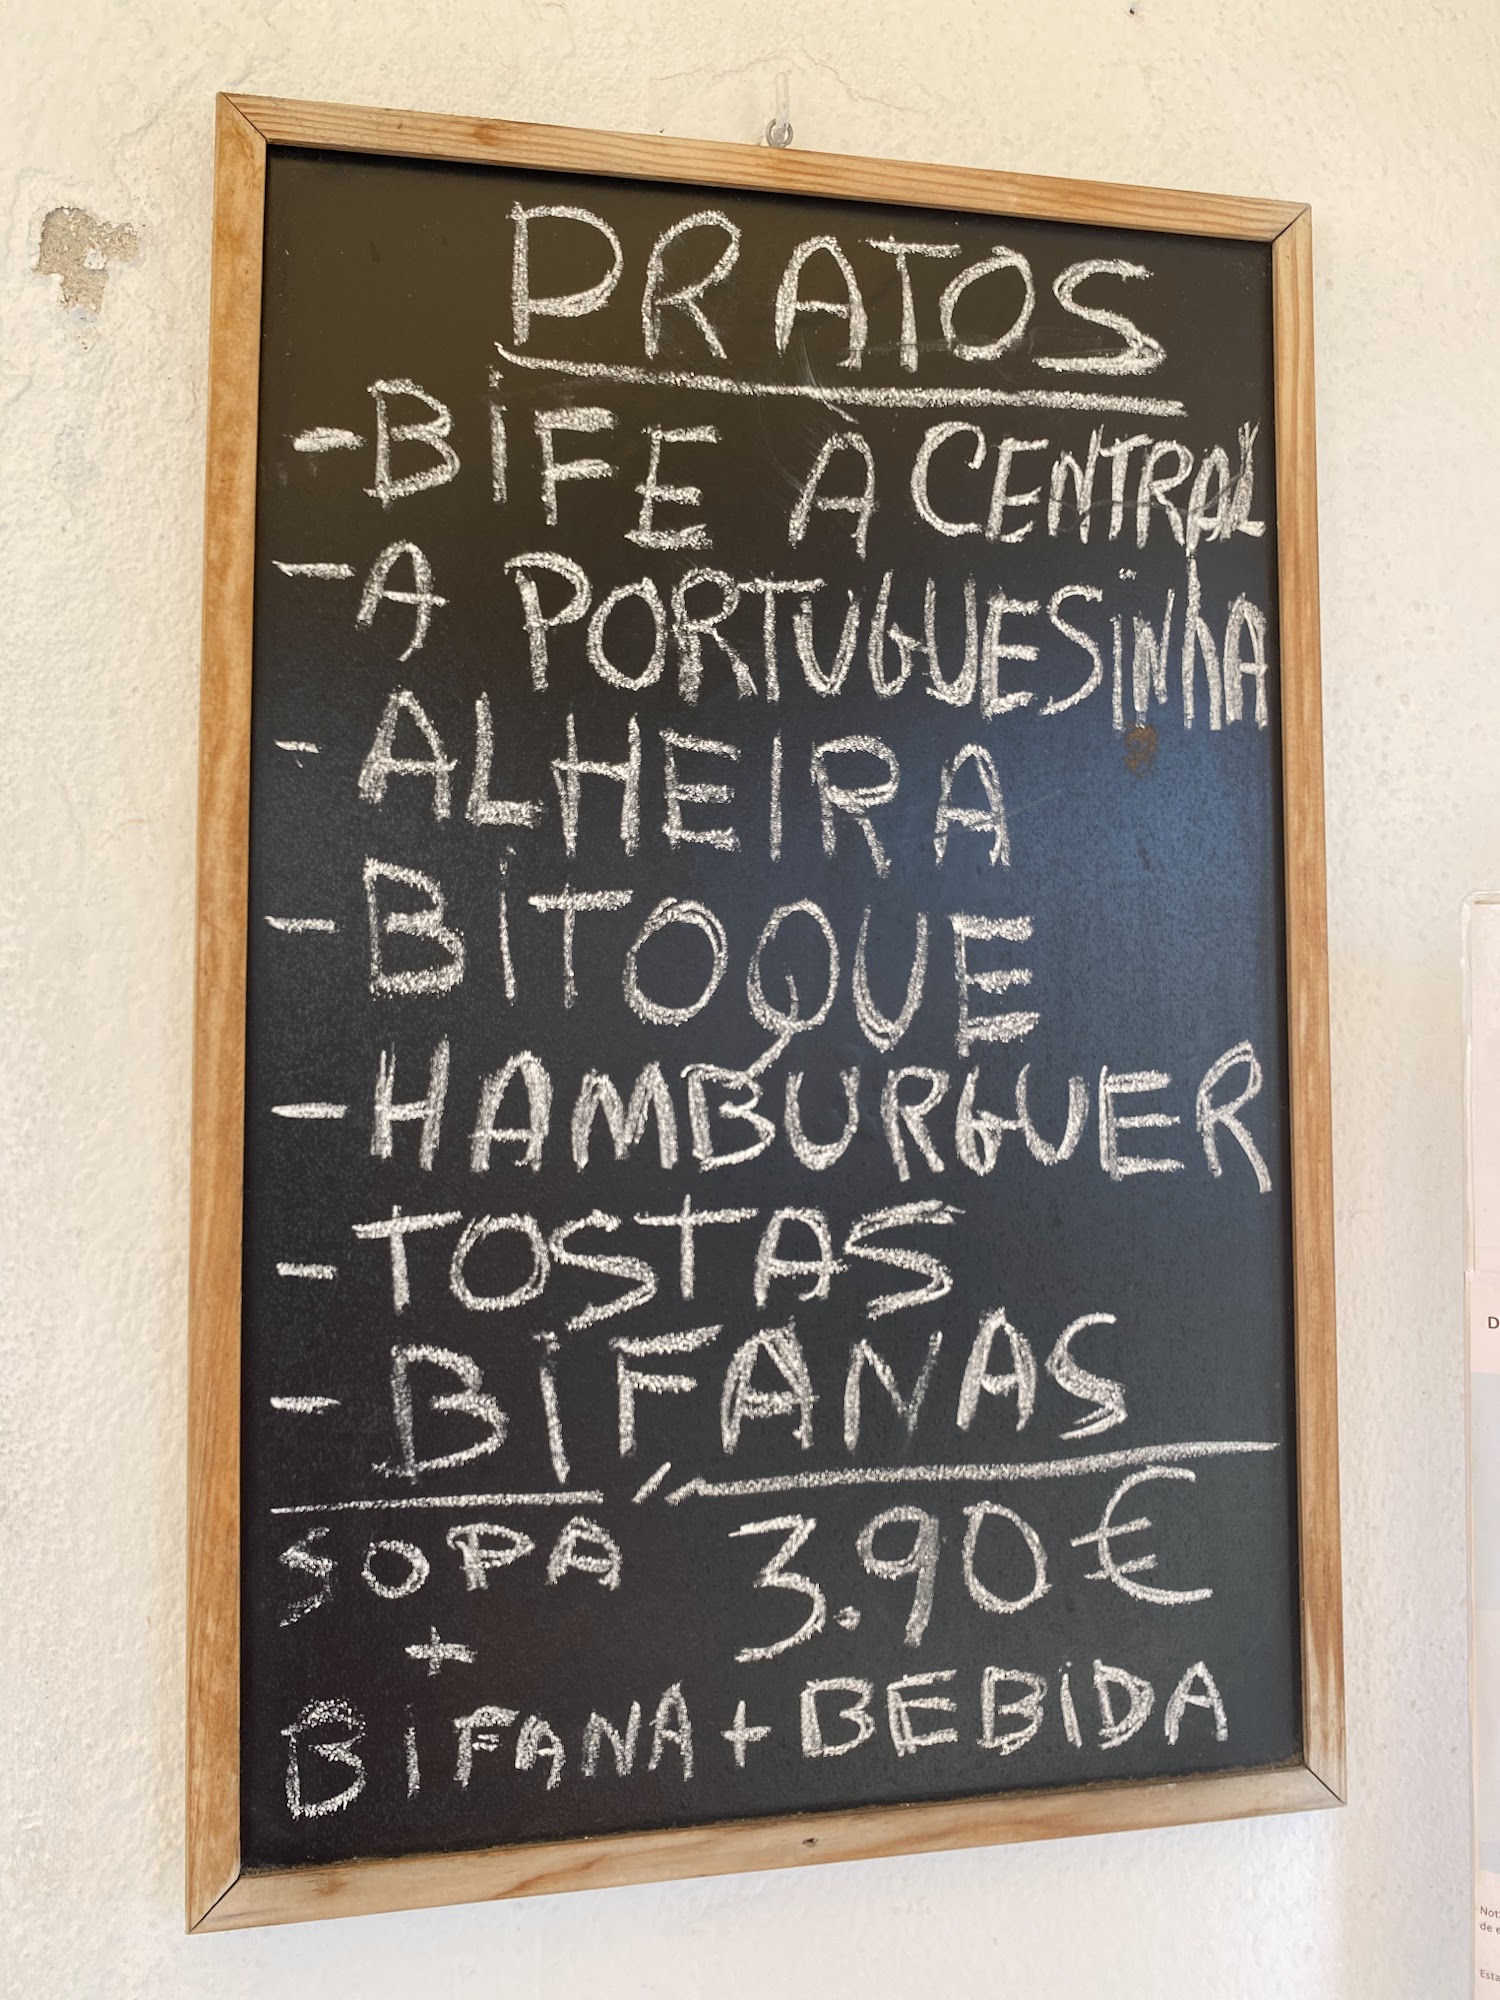 PRATOS
- BIFE À CENTRAL
- A PORTUGUESINHA
- ALHEIRA
- BITOQUE
- HAMBURGUER
- TOSTAS
- BIFANAS
SOPA 3.90€
+
BIFANA + BEBIDA
D
Not
de e
Esta